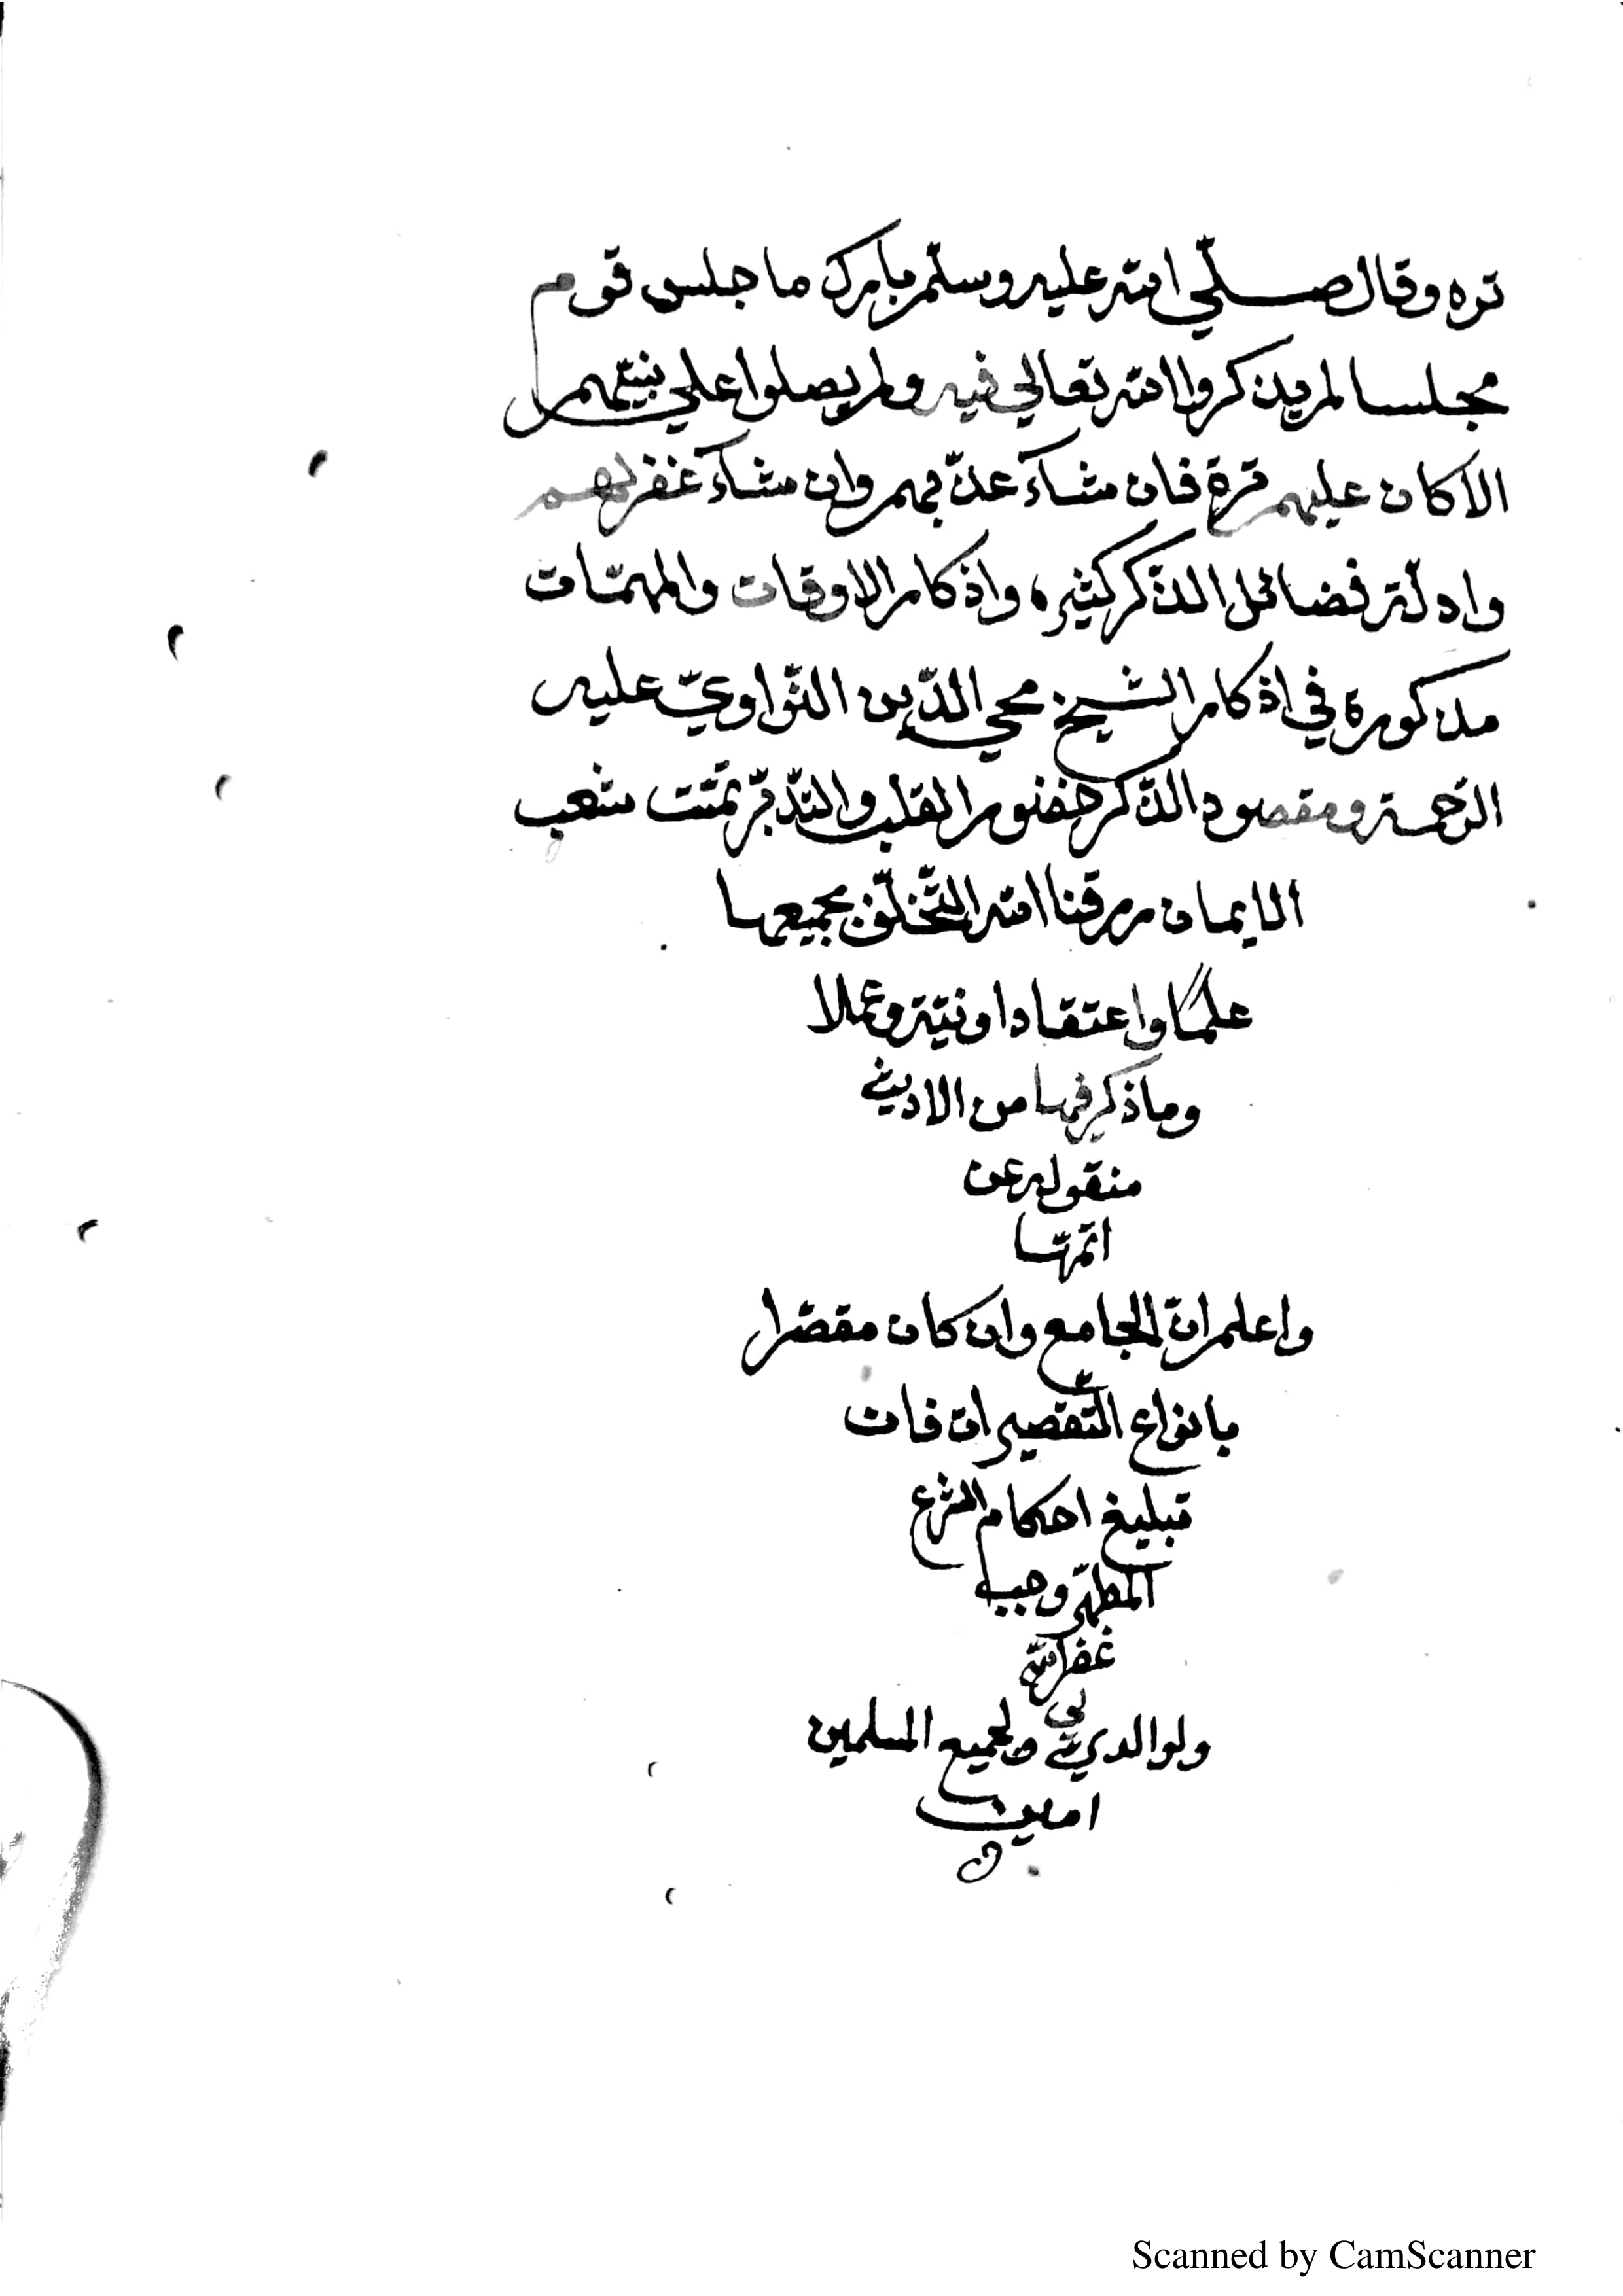 تره وقال صلّي الله عليه وسلّم وبارك ما جلس قوم
مجلسا لم يذكروا الله تعالي فيه ولم يصلوا علي نبيّهم
الا كان عليهم ترة فان شآء عذّبهم وان شآء غفر لهم
وادلّة فضائل الذّكر كثيرة واذكار الاوقات والمهمّات
مذكورة في اذكار الشيخ محي الدّين النّواويّ عليه
الرّحمة ومقصود الذّكر حضور القلب والتّدبّر تمّت شعب
الايمان رزقنا الله التّخلّق بجميعها
علمًا واعتقادا ونيّة وعملا
وما ذكر فيها من الاديث
منقولة عن
ائمّتها
واعلم انّ الجامع وان كان مقصّرا
بانواع التّقصير ان فان
تبليغ احكام الشرع
المطهّر وجيه
غفر الله
لي
ولوالديّ ولجميع المسلمين
امين
Scanned by CamScanner